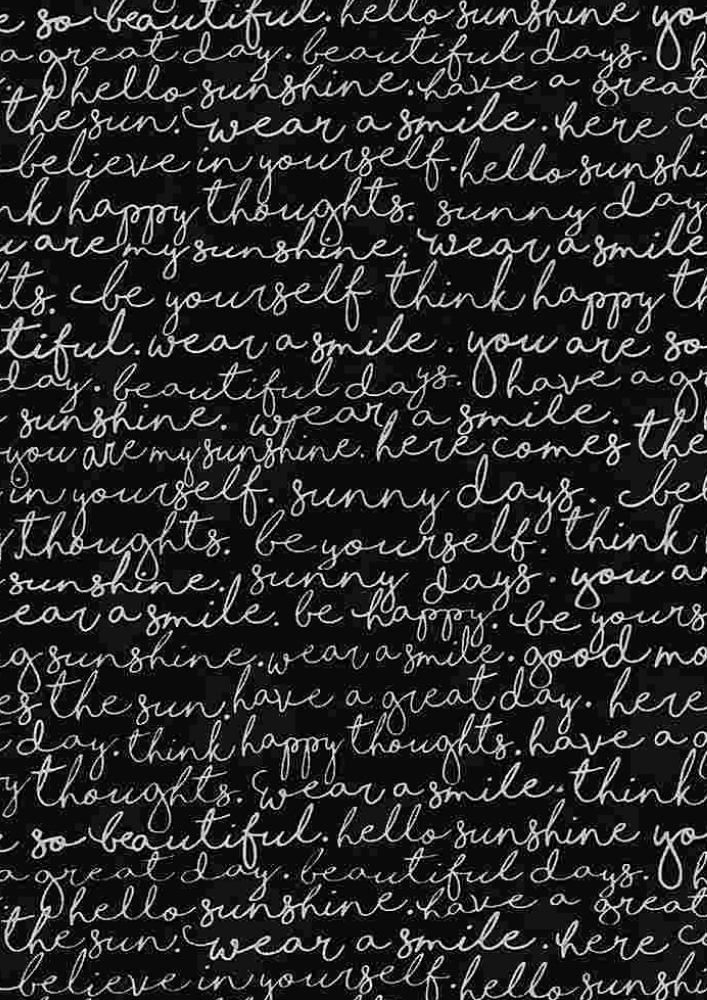 e so beautiful. hello sunshine yo
a great day. beautiful days. h
hello sunshine. have a great
the sun. wear a smile. here co
believe in yourself. hello sunshi
nk happy thoughts. sunny day
u are my sunshine. wear a smile
ts. be yourself think happy th
tiful. wear a smile. you are so
day. beautiful days. have a gr
sunshine. wear a smile.
you are my sunshine. here comes the
in yourself. sunny days. bel
thoughts. be yourself. think
sunshine. sunny days. you ar
ear a smile. be happy. be yours
g sunshine. wear a smile. good mo
es the sun. have a great day. here
day. think happy thoughts. have a g
y thoughts. wear a smile. think
e so beautiful. hello sunshine yo
a great day. beautiful days. h
hello sunshine. have a great
the sun. wear a smile. here co
believe in yourself. hello sunshi